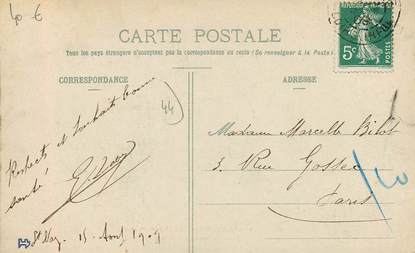 40 €
CARTE POSTALE
Tous les pays étrangers n'acceptent pas la correspondance au recto (Se renseigner à la Poste)
CORRESPONDANCE
ADRESSE
5c
POSTES
44
Respects et souhaits bonne
santé
Madame Marcelle Bilot
3, Rue Gossec
Paris
St Naz. 15 Août 1909